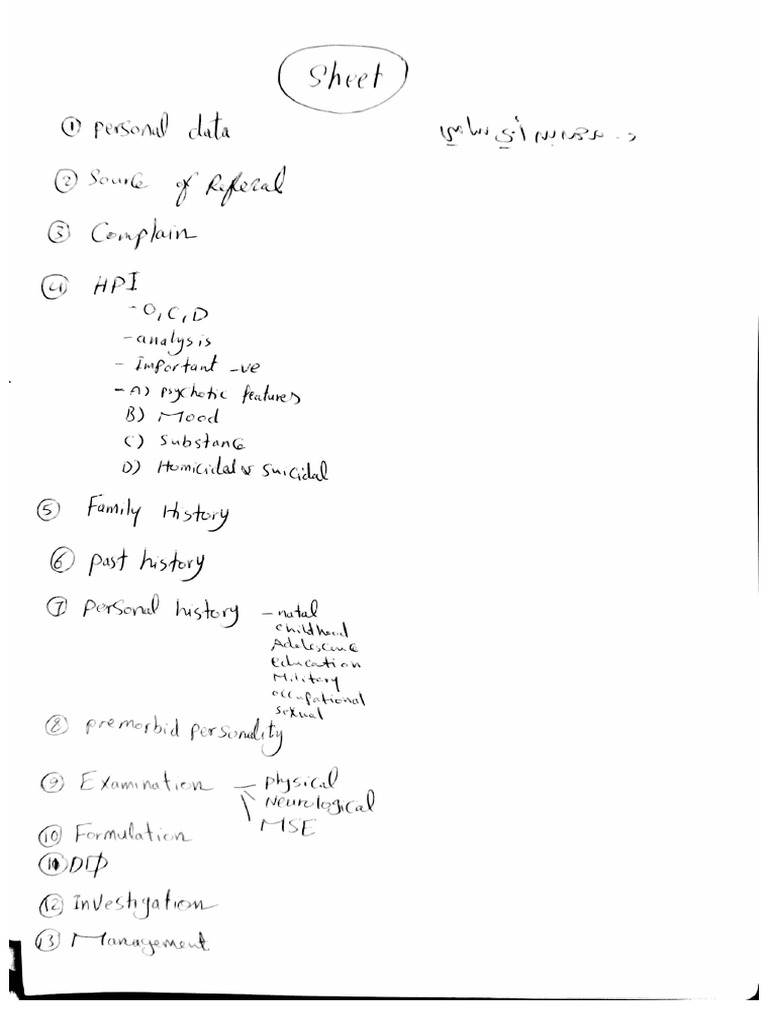 Sheet
① Personal data
② Source of Referal
③ Complain
④ HPI
- O, C, D
- analysis
- Important -ve
- A) psychotic features
B) Mood
C) Substance
D) Homicidal & Suicidal
⑤ Family History
⑥ past history
⑦ Personal history - natal
childhood
Adolescence
education
Military
occupational
sexual
⑧ premorbid personality
⑨ Examination - physical
Neurological
MSE
⑩ Formulation
⑪ DD
⑫ Investigation
⑬ Management